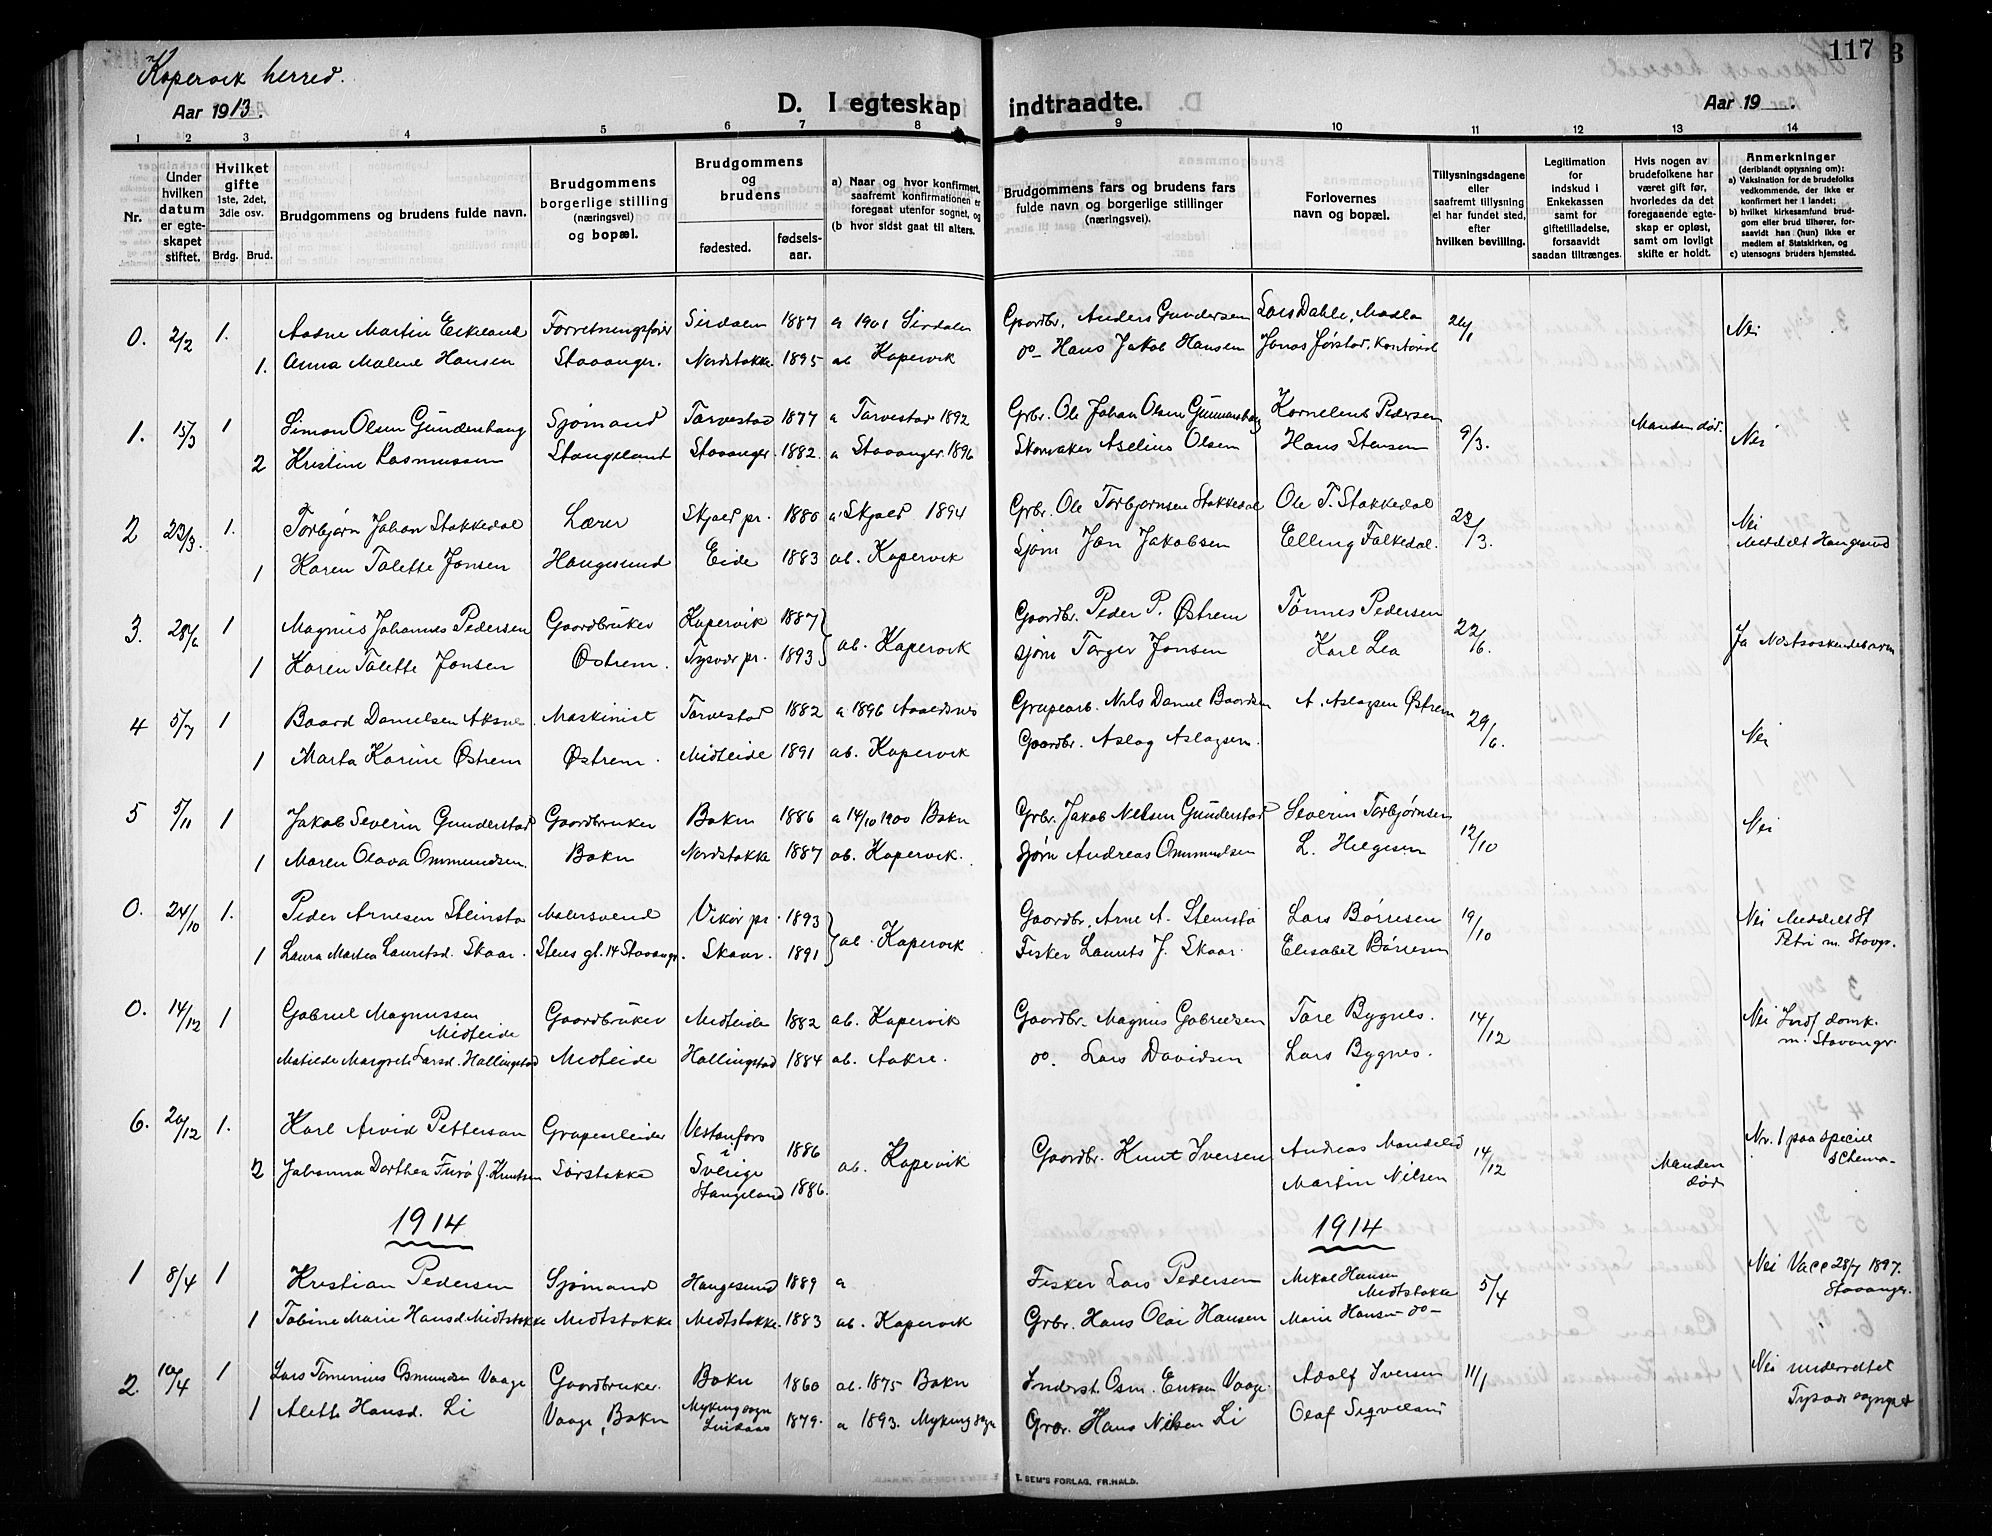 Kopervik herred.
117
3
Aar 1913.
D. I egteskap indtraadte.
Aar 19
1 2 3 4 5 6 7 8 9 10 11 12 13 14
Nr.
Under hvilken datum er egteskapet stiftet.
Hvilket gifte 1ste, 2det, 3die osv.
Brdg. Brud.
Brudgommens og brudens fulde navn.
Brudgommens borgerlige stilling (næringsvei) og bopæl.
Brudgommens og brudens
fødested.
fødsels-aar.
a) Naar og hvor konfirmert, saafremt konfirmationen er foregaat utenfor sognet, og
(b hvor sidst gaat til alters.
Brudgommens fars og brudens fars fulde navn og borgerlige stillinger (næringsvei).
Forlovernes navn og bopæl.
Tillysningsdagene eller saafremt tillysning ei har fundet sted, efter hvilken bevilling.
Legitimation for indskud i Enkekassen samt for giftetilladelse, forsaavidt saadan tiltrænges.
Hvis nogen av brudefolkene har været gift før, hvorledes da det foregaaende egteskap er opløst, samt om lovligt skifte er holdt.
Anmerkninger (deriblandt oplysning om):
a) Vaksination for de brudefolks vedkommende, der ikke er konfirmert her i landet;
b) hvilket kirkesamfund brudgom eller brud tilhører, forsaavidt han (hun) ikke er medlem av Statskirken, og
c) utensogns bruders hjemsted.
0. 2/2 1. Aadne Martin Eikeland Forretningsfører Sirdalen 1887 a 1901 Sirdalen Gaardbr. Anders Gundersen Lars Dahle, Madla 26/1 Nei
1. Anna Malene Hansen Stavanger. Nordstokke 1895 ab Kopervik do- Hans Jakob Hansen Jonas Jørstad, Kontorist
1. 15/3 1 Simon Olsen Gunders­haug Sjømand Torvestad 1877 a Torvestad 1892 Grbr. Ole Johan Olsen Gunnarshaug Kornelius Pedersen 9/3. Manden død. Nei
2 Kristine Rasmussen Stangeland Stavanger 1882. a Stavanger 1896 Aselius Olsen Hans Stensen
2 23/3. 1. Torbjørn Johan Stakkedal Lærer Skjold pr. 1880 a Skjold 1894 Grbr. Ole Torbjørnsen Stakkedal Ole T. Stakkedal 23/3. Nei
1 Karen Talette Jonsen Haugesund Eide 1883 ab. Kopervik sjøm Jon Jakobsen Elling Falkedal. Meddelt Haugesund
3. 28/6 1 Magnus Johannes Pedersen Gaardbruker Kopervik 1887 ab. Kopervik Gaardbr. Peder P. Østrem Tønnes Pedersen 22/6. Ja Næstsøskendebarn
1 Karen Talette Jonsen Østrem. Tysvær pr. 1893 sjøm Torger Jonsen Karl Lea
4 5/7 1 Baard Danielsen Aksnes Maskinist Torvestad 1882 a 1896 Avaldsnes Grubearb. Nils Daniel Baardsen A. Aslagsen Østrem 29/6. Nei
1 Marta Karine Østrem Østrem. Midteide 1891 ab. Kopervik Gaardbr. Aslag Aslagsen.
5 5/11 1 Jakob Severin Gunderstad Gaardbruker Bokn 1886 a 14/10 1900 Bokn Grbr. Jakob Nilsen Gunderstad Severin Torbjørnsen 12/10 Nei
1 Maren Olava Ommundsen. Bokn Nordstokke 1887 ab. Kopervik. sjøm Andreas Ommundsen L. Helgesen
0. 24/10 1. Peder Arnesen Steinstø Malersvend Vikør pr. 1893 ab. Kopervik Gaardbr. Arne A. Steinstø Lars Børresen 19/10 Nei Meddelt St
1 Laura Martea Lauritsd. Skaar. Stens gt. 14 Stavanger. Skaar. 1891 Fisker Laurits J. Skaar. Elisabet Børresen Petri m. Stavgr.
0. 14/12 1 Gabriel Magnussen Midteide Gaardbruker Midteide 1882 ab. Kopervik Gaardbr. Magnus Gabrielsen Tore Bygnes. 14/12 Nei Indf domk. m. Stavanger.
Matilde Margrete Larsd. Hallingstad Midteide Hallingstad 1884 ab. Aakre. do. Lars Davidsen Lars Bygnes.
6. 20/12 1. Karl Arvid Petterson Grubearbeider Vestanfors i Sverige 1886 ab. Kopervik Andreas Mandelid 14/12 Nr. 1 paa speciel Schema
2 Johanna Dorthea Furø f. Knutsen Sørstokke Stangeland 1886. Gaardbr. Knut Iversen Martin Nilsen Manden død
1914
1914
1 8/4 1 Kristian Pedersen Sjømand Haugesund 1889 a Fisker Lars Pedersen Mikal Hansen Midtstokke 5/4 Nei Vacc 28/7 1897. Stavanger.
1 Tobine Marie Hansd. Midtstokke Midtstokke Midtstokke. 1883 ab. Kopervik Grbr. Hans Olai Hansen Marie Hansen do-
2. 10/4 1 Lars Tominius Osmundsen Vaage Gaardbruker. Bokn 1860 ab. 1875 Bokn Inderst. Osm. Eriksen Vaage. Adolf Iversen 11/1 Nei underrettet
1 Alette Hansd. Li Vaage, Bokn Myking sogn Lindaas 1879. a 1893. Myking sogn Hans Nilsen Li Olaf Tysvær sognepr
E. SEM'S FORLAG, FR.HALD.